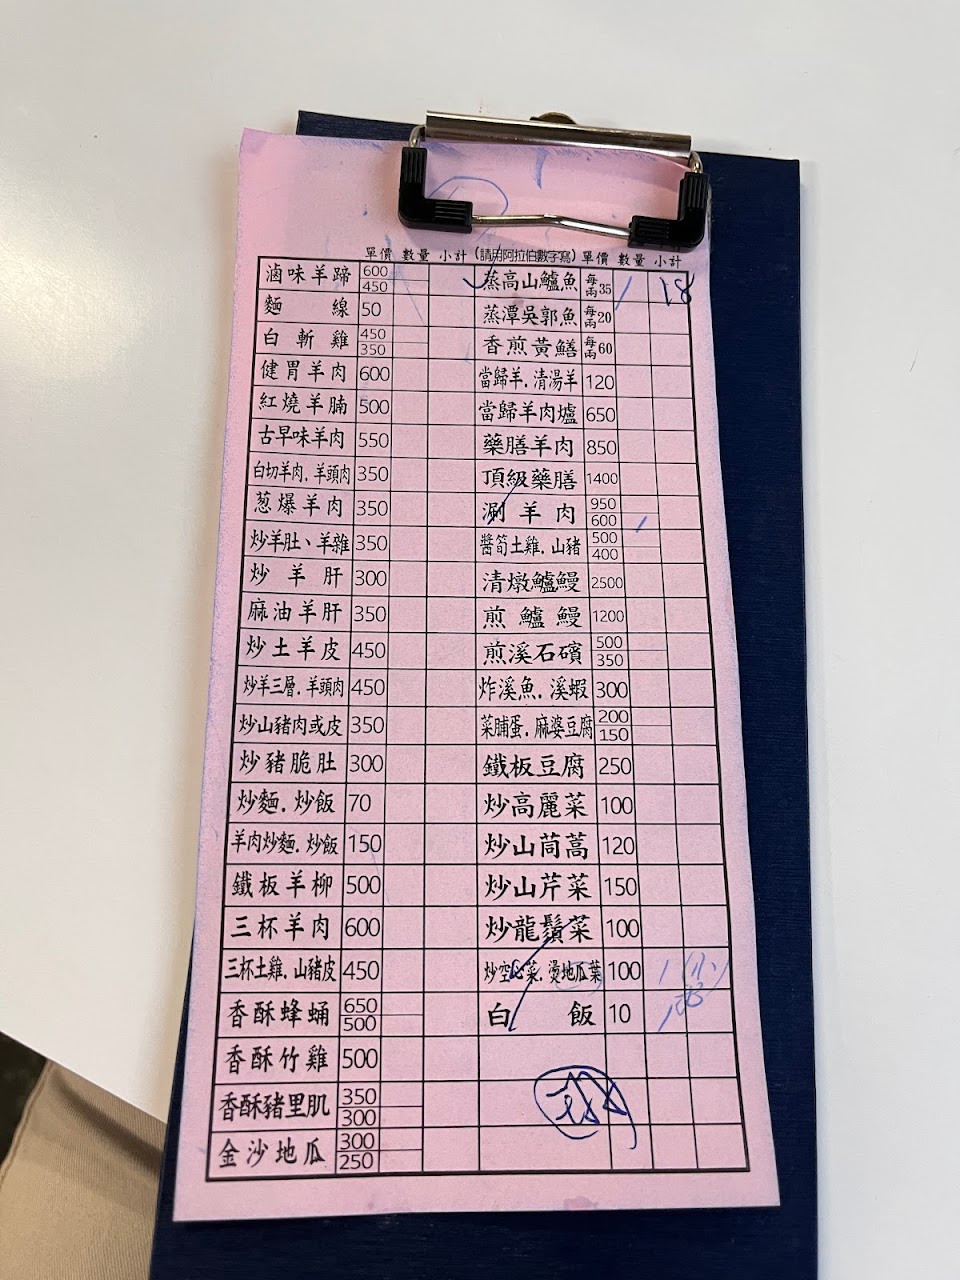 單價 數量 小計 (請用阿拉伯數字寫) 單價 數量 小計
滷味羊蹄 600 450
麵 線 50
白斬雞 450 350
健胃羊肉 600
紅燒羊腩 500
古早味羊肉 550
白切羊肉.羊頭肉 350
葱爆羊肉 350
炒羊肚、羊雜 350
炒羊肝 300
麻油羊肝 350
炒土羊皮 450
炒羊三層.羊頭肉 450
炒山豬肉或皮 350
炒豬脆肚 300
炒麵.炒飯 70
羊肉炒麵.炒飯 150
鐵板羊柳 500
三杯羊肉 600
三杯土雞.山豬皮 450
香酥蜂蛹 650 500
香酥竹雞 500
香酥豬里肌 350 300
金沙地瓜 300 250
蒸高山鱸魚 每兩35 / 18
蒸潭吳郭魚 每兩20
香煎黃鱔 每兩60
當歸羊.清湯羊 120
當歸羊肉爐 650
藥膳羊肉 850
頂級藥膳 1400
涮羊肉 950 600 /
醬筍土雞.山豬 500 400
清燉鱸鰻 2500
煎鱸鰻 1200
煎溪石礦 500 350
炸溪魚.溪蝦 300
菜脯蛋.麻婆豆腐 200 150
鐵板豆腐 250
炒高麗菜 100
炒山茼蒿 120
炒山芹菜 150
炒龍鬚菜 100
炒空心菜.燙地瓜葉 100 1 (小)
白 飯 10